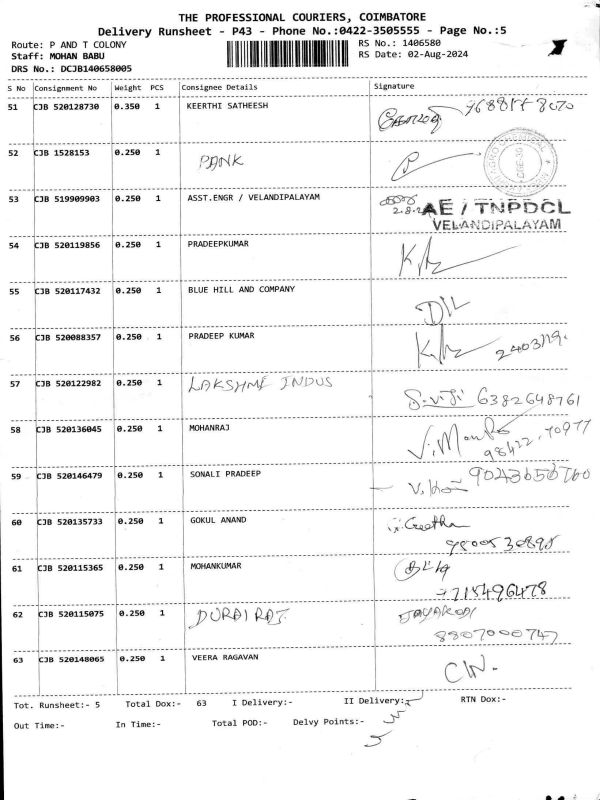 THE PROFESSIONAL COURIERS, COIMBATORE
Delivery Runsheet - P43 - Phone No.:0422-3505555 - Page No.:5
Route: P AND T COLONY RS No.: 1406580
Staff: MOHAN BABU RS Date: 02-Aug-2024
DRS No.: DCJB140658005
S No Consignment No Weight PCS Consignee Details Signature
51 CJB 520128730 0.350 1 KEERTHI SATHEESH
52 CJB 1528153 0.250 1 PANK
53 CJB 519909903 0.250 1 ASST.ENGR / VELANDIPALAYAM AE / TNPDCL
VELANDIPALAYAM
54 CJB 520119856 0.250 1 PRADEEPKUMAR
55 CJB 520117432 0.250 1 BLUE HILL AND COMPANY
56 CJB 520088357 0.250 1 PRADEEP KUMAR
57 CJB 520122982 0.250 1 LAKSHME INDUS
6382648761
58 CJB 520136045 0.250 1 MOHANRAJ
98422, 70977
59 CJB 520146479 0.250 1 SONALI PRADEEP
60 CJB 520135733 0.250 1 GOKUL ANAND Geetha
61 CJB 520115365 0.250 1 MOHANKUMAR
7215496478
62 CJB 520115075 0.250 1 DURAI RAJ
8807000747
63 CJB 520148065 0.250 1 VEERA RAGAVAN
Tot. Runsheet:- 5 Total Dox:- 63 I Delivery:- II Delivery:- RTN Dox:-
Out Time:- In Time:- Total POD:- Delvy Points:-